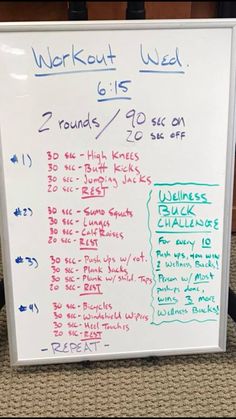 Workout Wed.
6:15
2 rounds / 90 sec on
20 sec off
#1) 30 sec - High Knees
30 sec - Butt Kicks
30 sec - Jumping Jacks
20 sec - REST
#2) 30 sec - Sumo Squats
30 sec - Lunges
30 sec - Calf Raises
20 sec - REST
#3) 30 sec - Push Ups w/ rot.
30 sec - Plank Jacks
30 sec - Plank w/ shld. Taps
20 sec - REST
#4) 30 sec - Bicycles
30 sec - Windshield Wipers
30 sec - Heel Touches
20 sec - REST
- REPEAT -
Wellness
BUCK
CHALLENGE
For every 10
Push ups, you win
2 Wellness Bucks!
Person w/ Most
pushups done,
wins 3 more
Wellness Bucks!